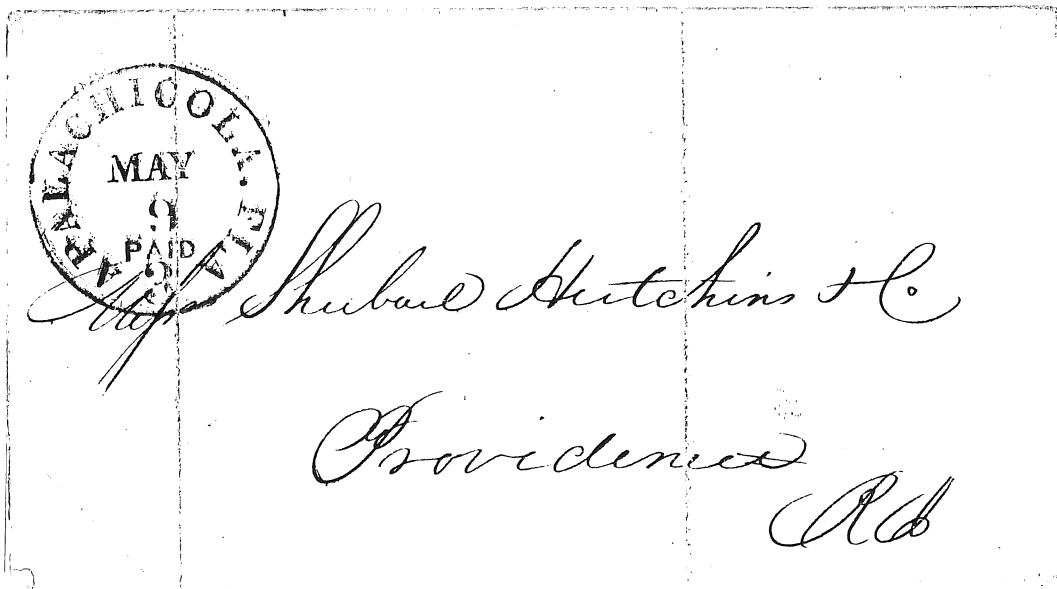 APALACHICOLA. FLA
MAY
9
PAID
3
Messrs Shubael Hutchins & Co.
Providence
RI